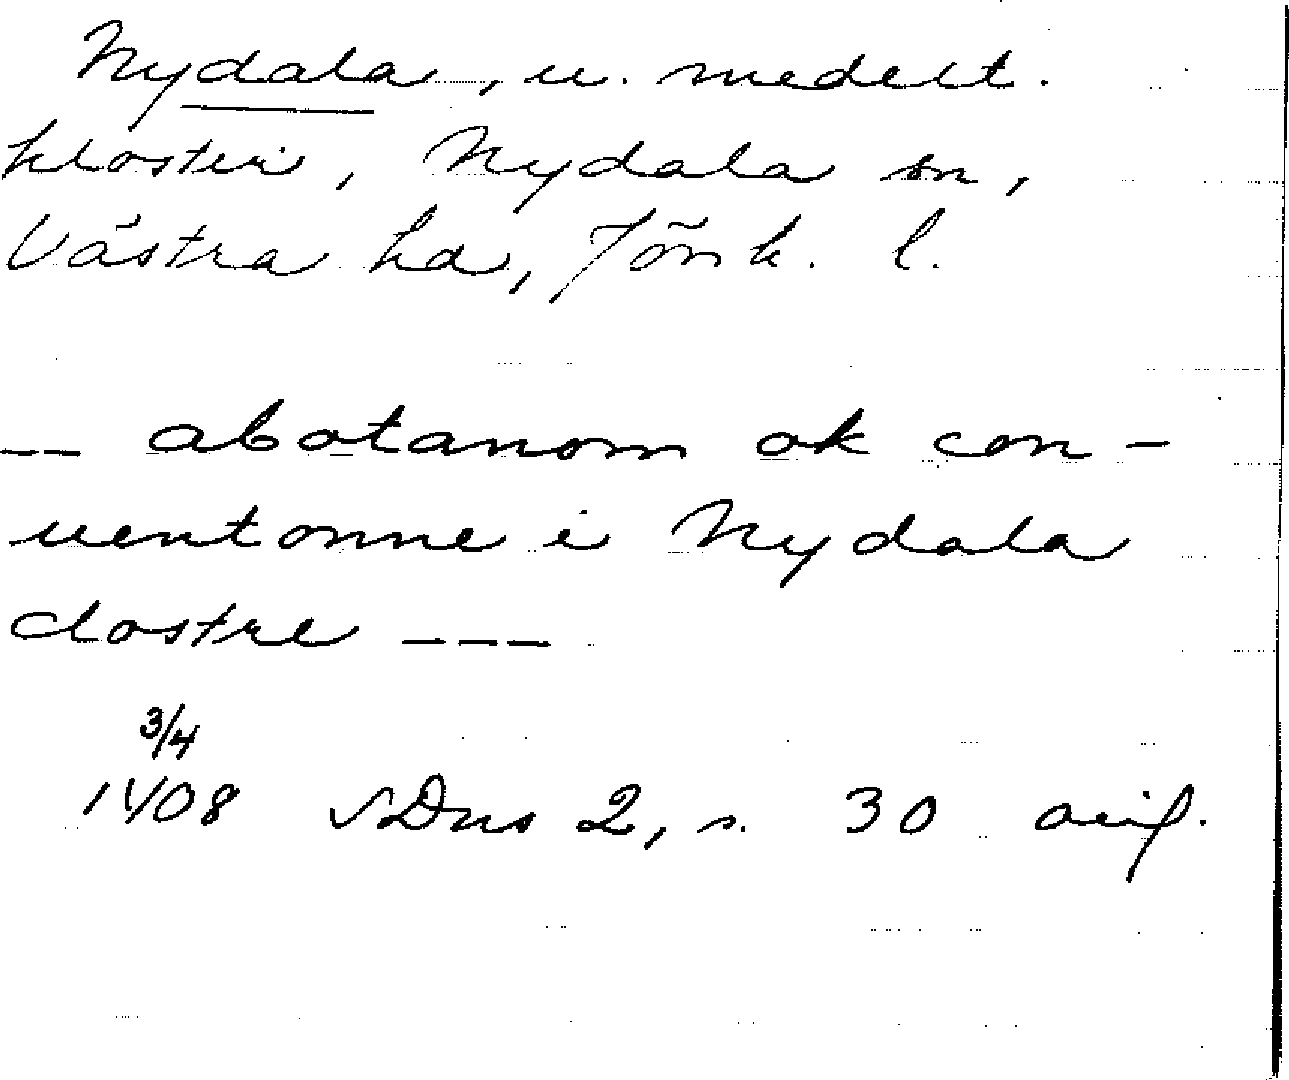 Nydala, u. medelt.
kloster, Nydala sn,
Västra hd, Jönk. l.
-- abotanom ok con-
uentonne i Nydala
clostre ---
3/4
1408 SDns 2, s. 30 avs.